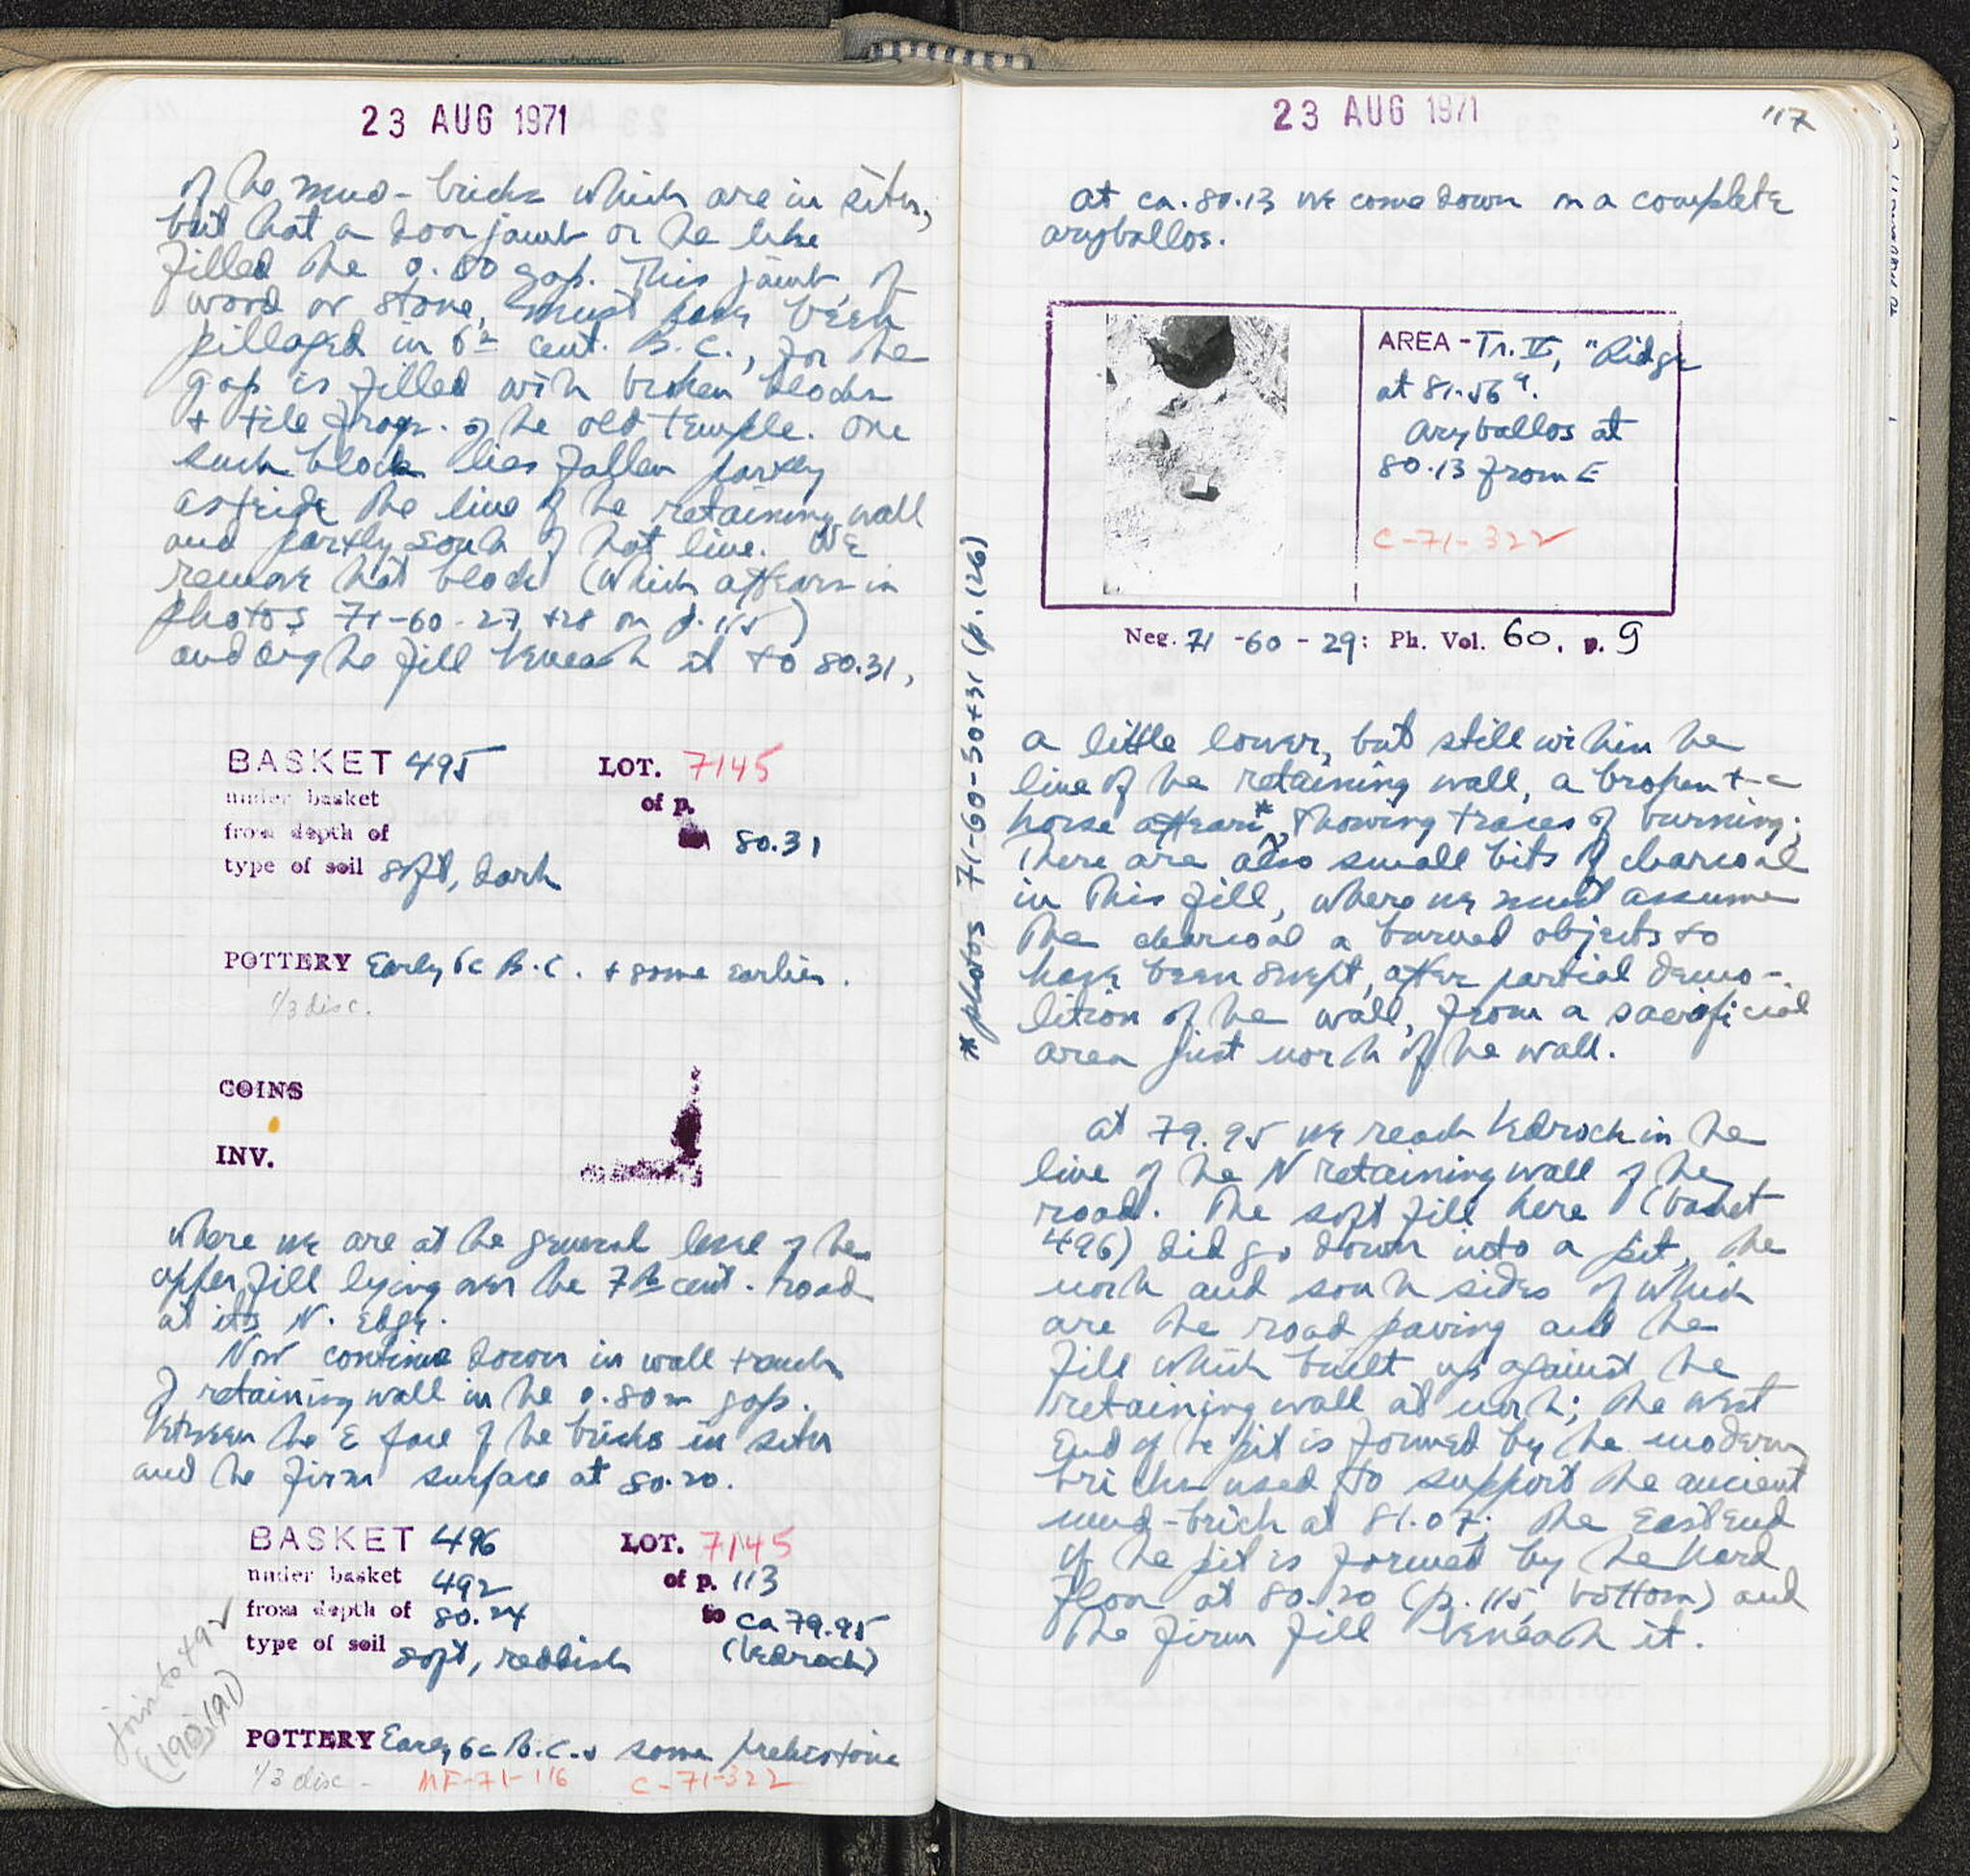 23 AUG 1971
of the mud-bricks which are in situ,
but that a door jamb or the like
filled the 0.80 gap. This jamb, of
wood or stone, must have been
pillaged in 6th cent. B.C., for the
gap is filled with broken blocks
+ tile frags. of the old temple. One
such block lies fallen partly
astride the line of the retaining wall
and partly south of that line. We
remove that block (which appears in
photos 71-60-27 +28 on p. 115)
and dig the fill beneath it to 80.31,
BASKET 495 LOT. 7145
under basket of p.
from depth of 80.31
type of soil soft, dark
POTTERY Early 6c B.C. + some earlier.
1/3 disc.
COINS
INV.
where we are at the general level of the
upper fill lying over the 7th cent. road
at its N. Edge.
Now continue down in wall trench
of retaining wall in the 0.80m gap.
between the E face of the bricks in situ
and the firm surface at 80.20.
BASKET 496 LOT. 7145
under basket 492 of p. 113
from depth of 80.24 to ca 79.95
type of soil soft, reddish (bedrock)
join to 492
POTTERY Early 6c B.C. + some prehistoric
1/3 disc - MF-71-116 C-71-322
23 AUG 1971 117
at ca. 80.13 we come down on a complete
aryballos.
AREA - Tr. II, "Ridge
at 81.56".
Aryballos at
80.13 from E
C-71-322
Neg. 71-60-29: Ph. Vol. 60, p. 9
* photos 71-60-30+31 (p. 126)
a little lower, but still within the
line of the retaining wall, a broken t-c
horse appears*, showing traces of burning;
There are also small bits of charcoal
in this fill, where we must assume
the charcoal a burned objects to
have been swept, after partial demo-
lition of the wall, from a sacrificial
area just north of the wall.
at 79.95 we reach bedrock in the
line of the N retaining wall of the
road. The soft fill here (basket
496) did go down into a pit, the
north and south sides of which
are the road paving and the
fill which built up against the
retaining wall at north; the west
End of the pit is formed by the modern
bricks used to support the ancient
mud-brick at 81.07; the East end
of the pit is formed by the hard
floor at 80.20 (p. 115, bottom) and
the firm fill beneath it.